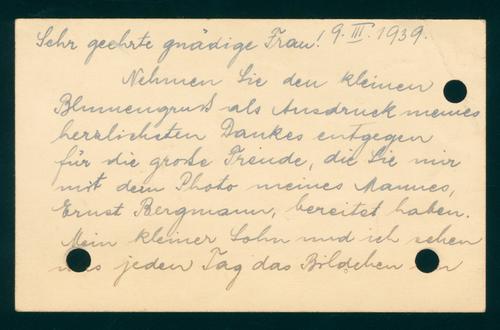 Sehr geehrte gnädige Frau! 9. III. 1939.
Nehmen Sie den kleinen
Blumengruß als Ausdruck meines
herzlichsten Dankes entgegen
für die große Freude, die Sie mir
mit dem Photo meines Mannes,
Ernst Bergmann, bereitet haben.
Mein kleiner Sohn und ich sehen
uns jeden Tag das Bildchen an